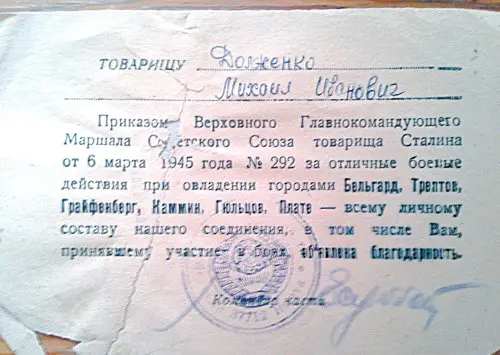 ТОВАРИЩУ Долженко
Михаил Иванович
Приказом Верховного Главнокомандующего
Маршала Советского Союза товарища Сталина
от 6 марта 1945 года № 292 за отличные боевые
действия при овладении городами Бельгард, Трептов,
Грайфенберг, Каммин, Гюльцов, Плате — всему личному
составу нашего соединения, в том числе Вам,
принявшему участие в боях, объявлена благодарность.
Командир части